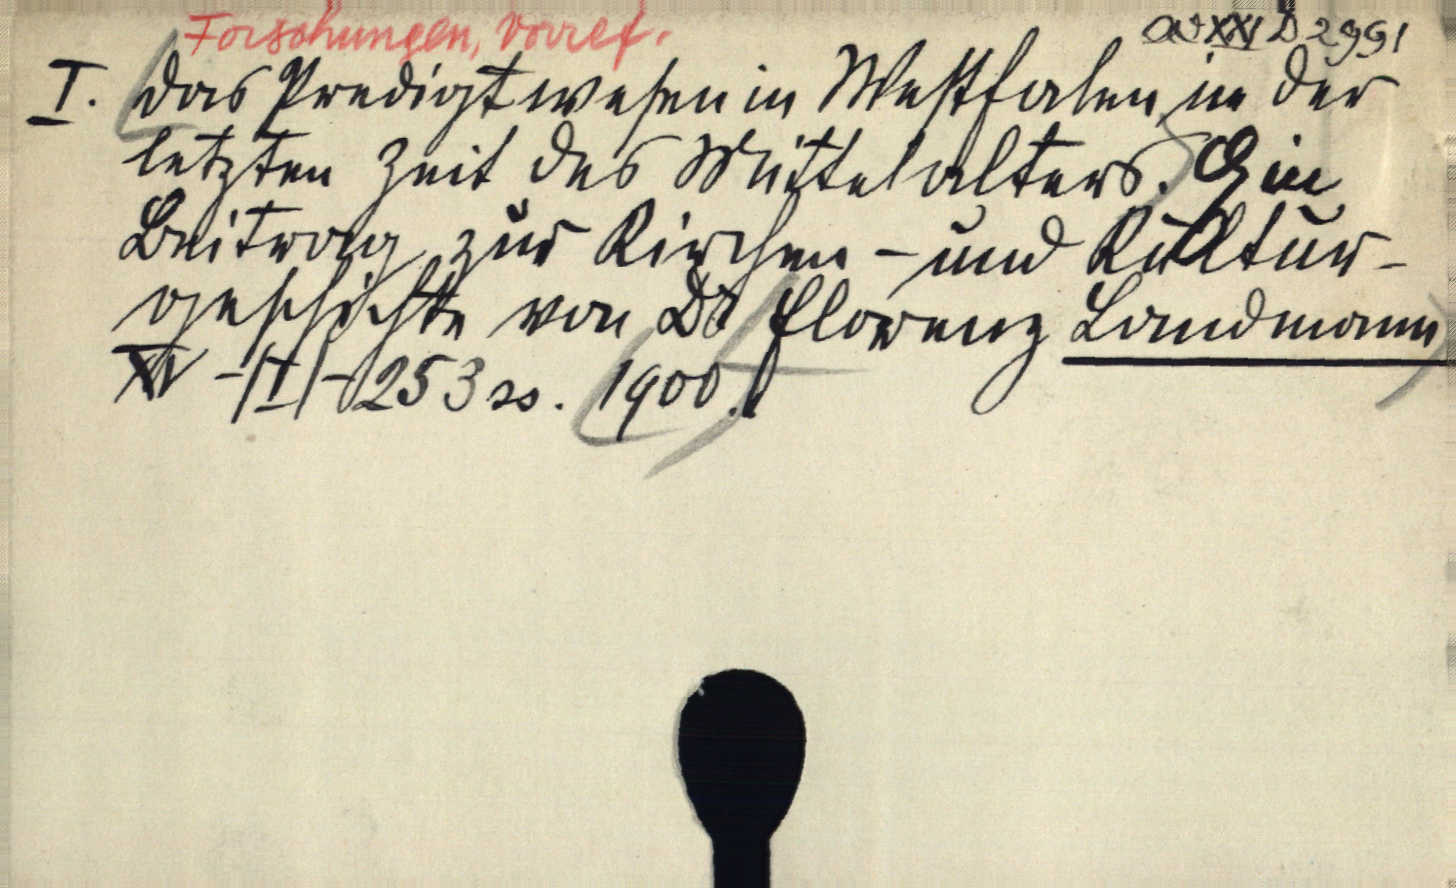 Forschungen, vorref.
ad XXI D 2991
I. Das Predigtwesen in Westfalen in der
letzten Zeit des Mittelalters. Ein
Beitrag zur Kirchen- und Kultur-
geschichte von Dr Florenz Landmann
XV -|I|- 253 ss. 1900.